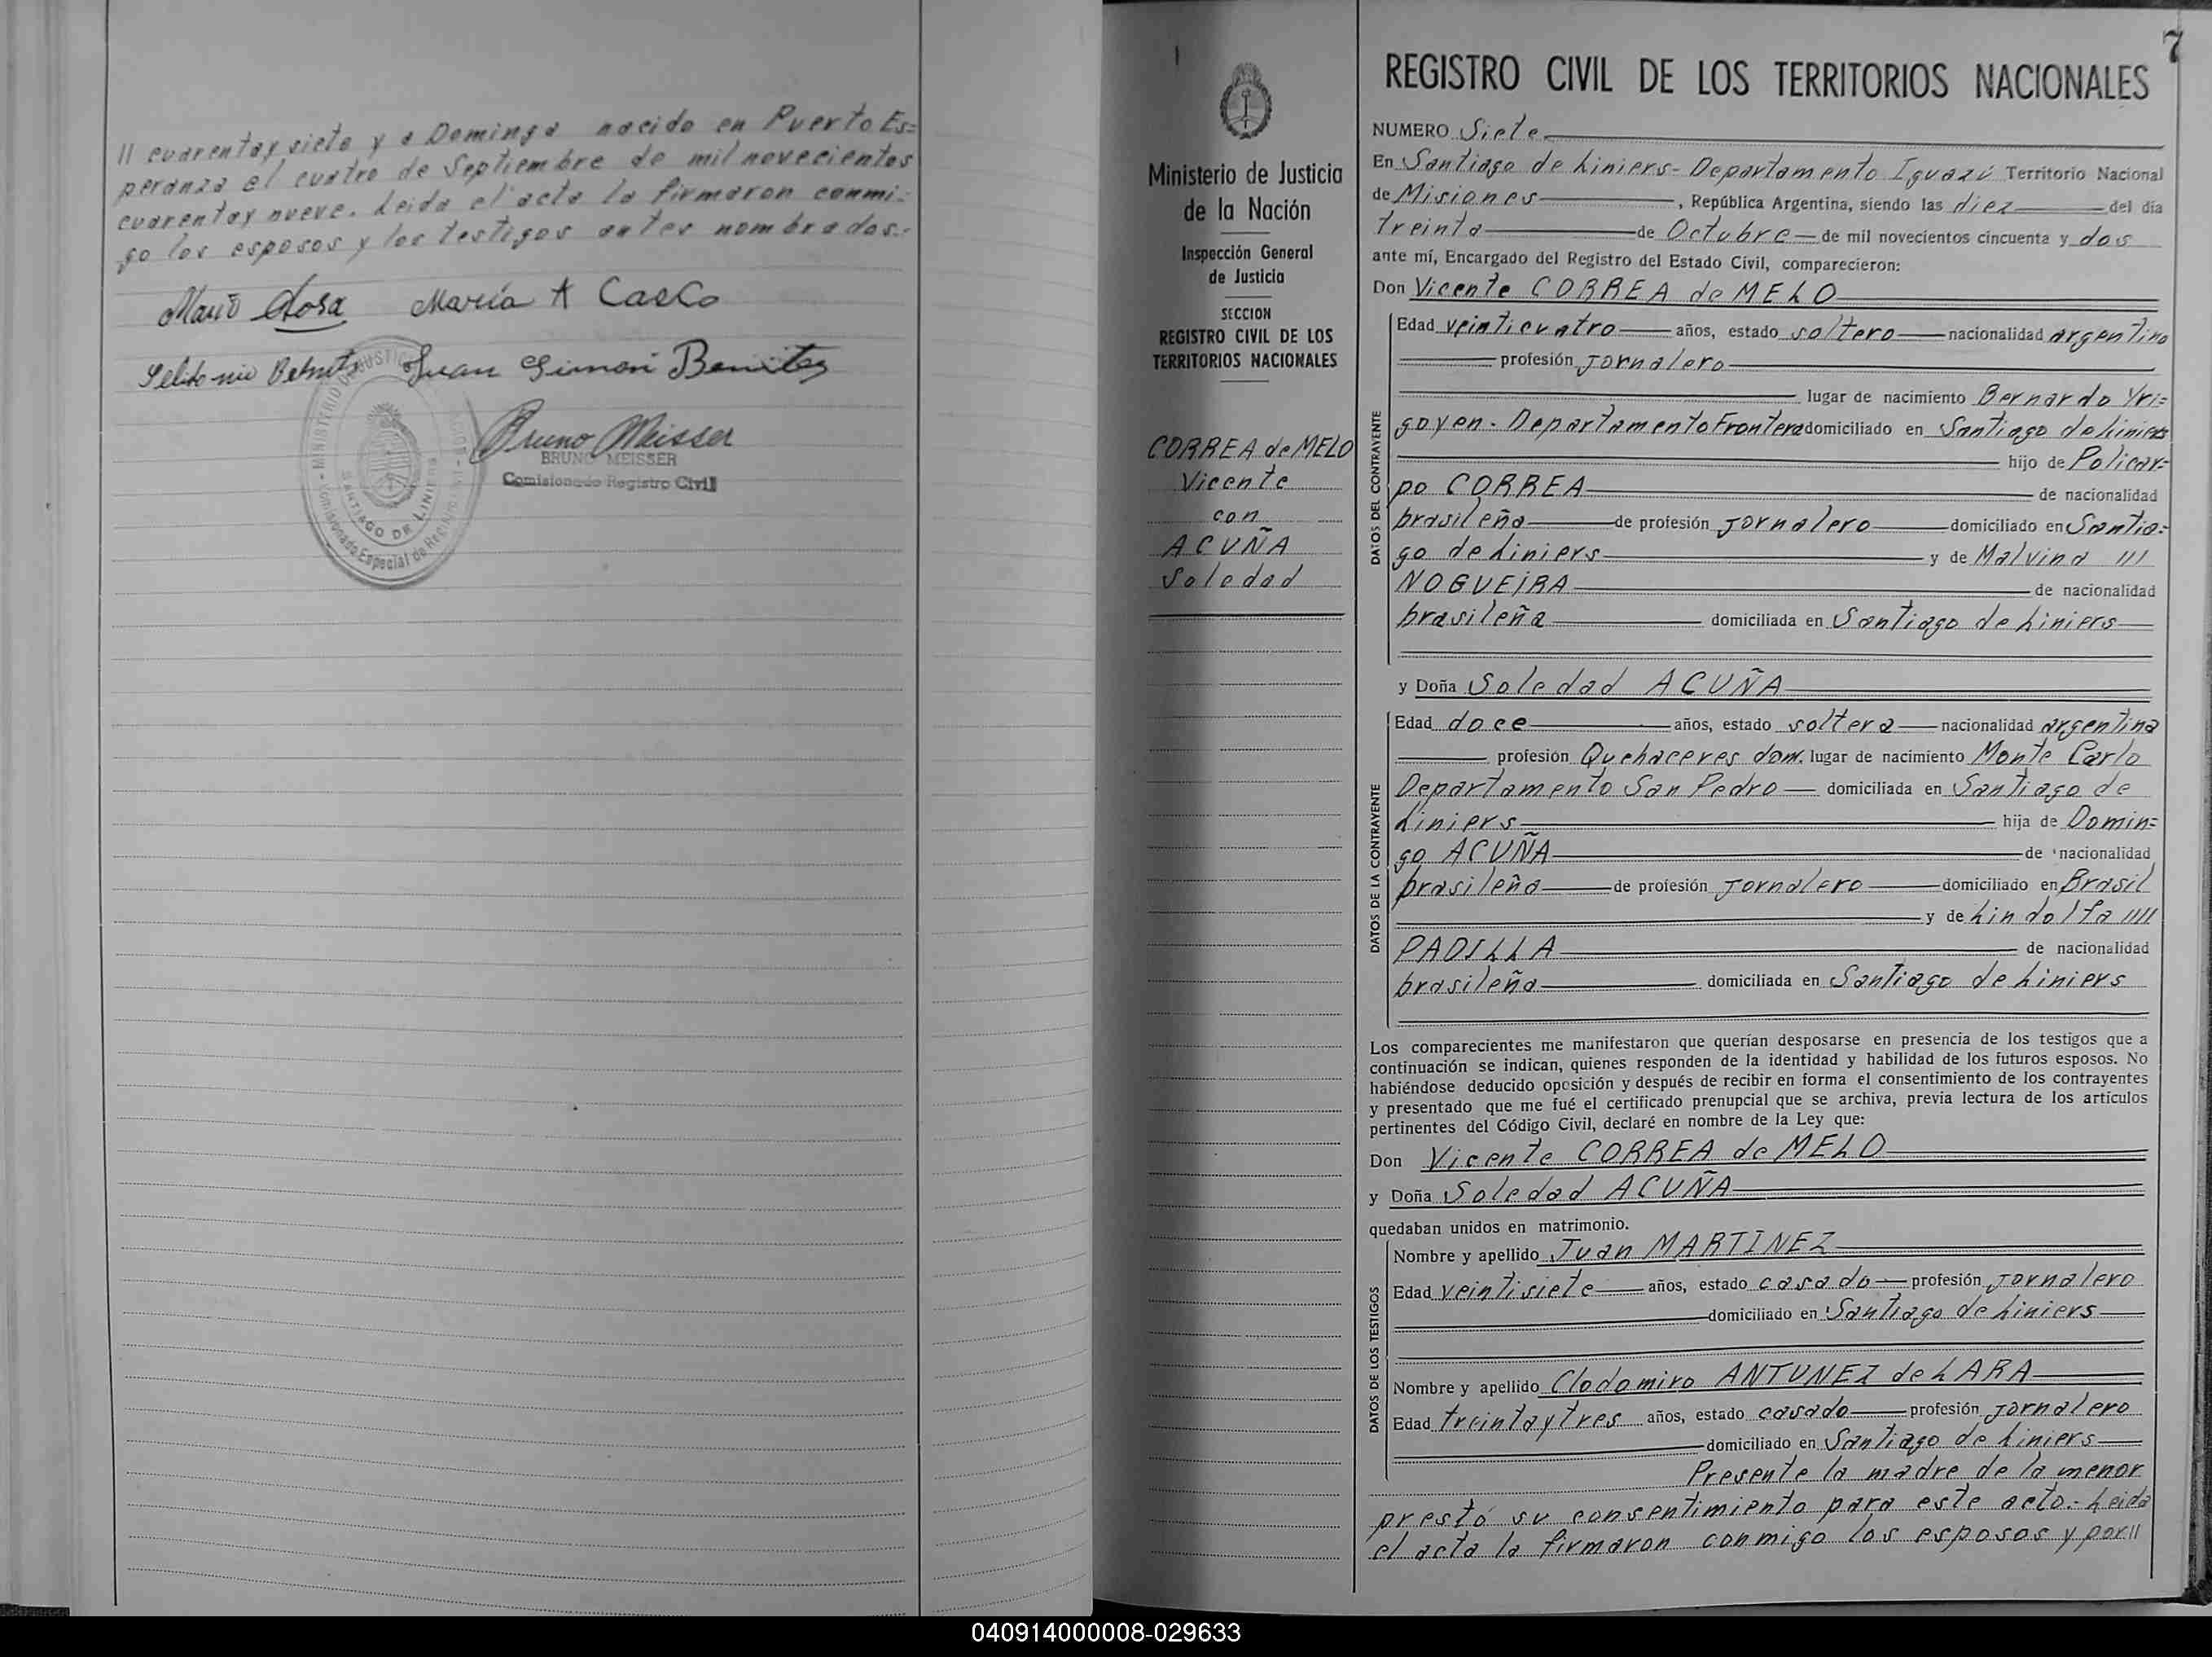 ll cuarenta y siete y a Dominga nacida en Puerto Es=
peranza el cuatro de Septiembre de mil novecientos
cuarenta y nueve. Leida el acta la firmaron conmi:
go los esposos y los testigos antes nombrados.-
Maria A Casco
Juan Simon Benitez
Bruno Meisser
BRUNO MEISSER
Comisionado Registro Civil
MINISTERIO DE JUSTICIA
SANTIAGO DE LINIERS
Comisionado Especial de Registro
7
Ministerio de Justicia
de la Nación
Inspección General
de Justicia
SECCION
REGISTRO CIVIL DE LOS
TERRITORIOS NACIONALES
CORREA de MELO
Vicente
con
ACUÑA
Soledad
REGISTRO CIVIL DE LOS TERRITORIOS NACIONALES
NUMERO Siete
En Santiago de Liniers - Departamento Iguazú Territorio Nacional
de Misiones, República Argentina, siendo las diez del día
treinta de Octubre de mil novecientos cincuenta y dos
ante mí, Encargado del Registro del Estado Civil, comparecieron:
Don Vicente CORREA de MELO
DATOS DEL CONTRAYENTE
Edad veinticuatro años, estado soltero nacionalidad argentino
profesión Jornalero
lugar de nacimiento Bernardo Yri=
goyen - Departamento Frontera domiciliado en Santiago de Liniers
hijo de Policar=
po CORREA de nacionalidad
brasileña de profesión Jornalero domiciliado en Santia=
go de Liniers y de Malvina ///
NOGUEIRA de nacionalidad
brasileña domiciliada en Santiago de Liniers
y Doña Soledad ACUÑA
DATOS DE LA CONTRAYENTE
Edad doce años, estado soltera nacionalidad argentina
profesión Quehaceres dom. lugar de nacimiento Monte Carlo
Departamento San Pedro domiciliada en Santiago de
Liniers hija de Domin=
go ACUÑA de nacionalidad
brasileña de profesión Jornalero domiciliado en Brasil
y de Lindolfa ////
PADILLA de nacionalidad
brasileña domiciliada en Santiago de Liniers
Los comparecientes me manifestaron que querían desposarse en presencia de los testigos que a
continuación se indican, quienes responden de la identidad y habilidad de los futuros esposos. No
habiéndose deducido oposición y después de recibir en forma el consentimiento de los contrayentes
y presentado que me fué el certificado prenupcial que se archiva, previa lectura de los artículos
pertinentes del Código Civil, declaré en nombre de la Ley que:
Don Vicente CORREA de MELO
y Doña Soledad ACUÑA
quedaban unidos en matrimonio.
DATOS DE LOS TESTIGOS
Nombre y apellido Juan MARTINEZ
Edad veintisiete años, estado casado profesión Jornalero
domiciliado en Santiago de Liniers
Nombre y apellido Clodomiro ANTUNEZ de LARA
Edad treinta y tres años, estado casado profesión Jornalero
domiciliado en Santiago de Liniers
Presente la madre de la menor
prestó su consentimiento para este acto.- Leida
el acta la firmaron conmigo los esposos y por ll
040914000008-029633